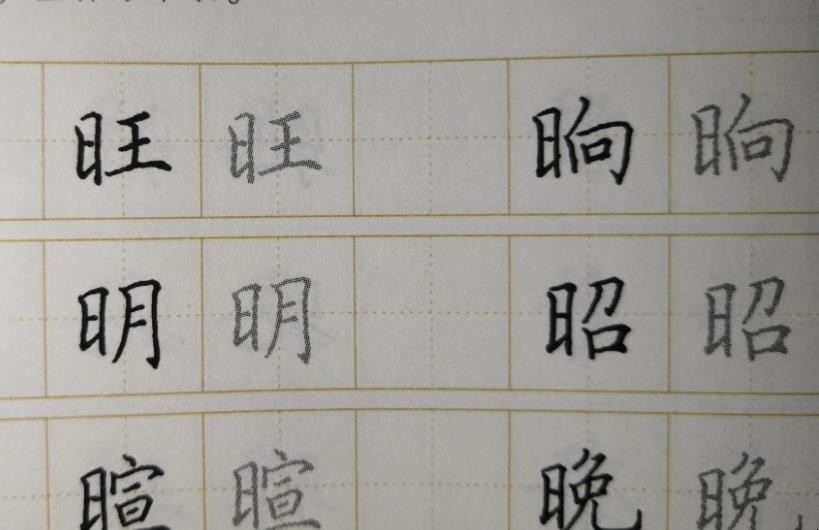 旺 旺 晌 晌
明 明 昭 昭
暄 暄 晚 晚